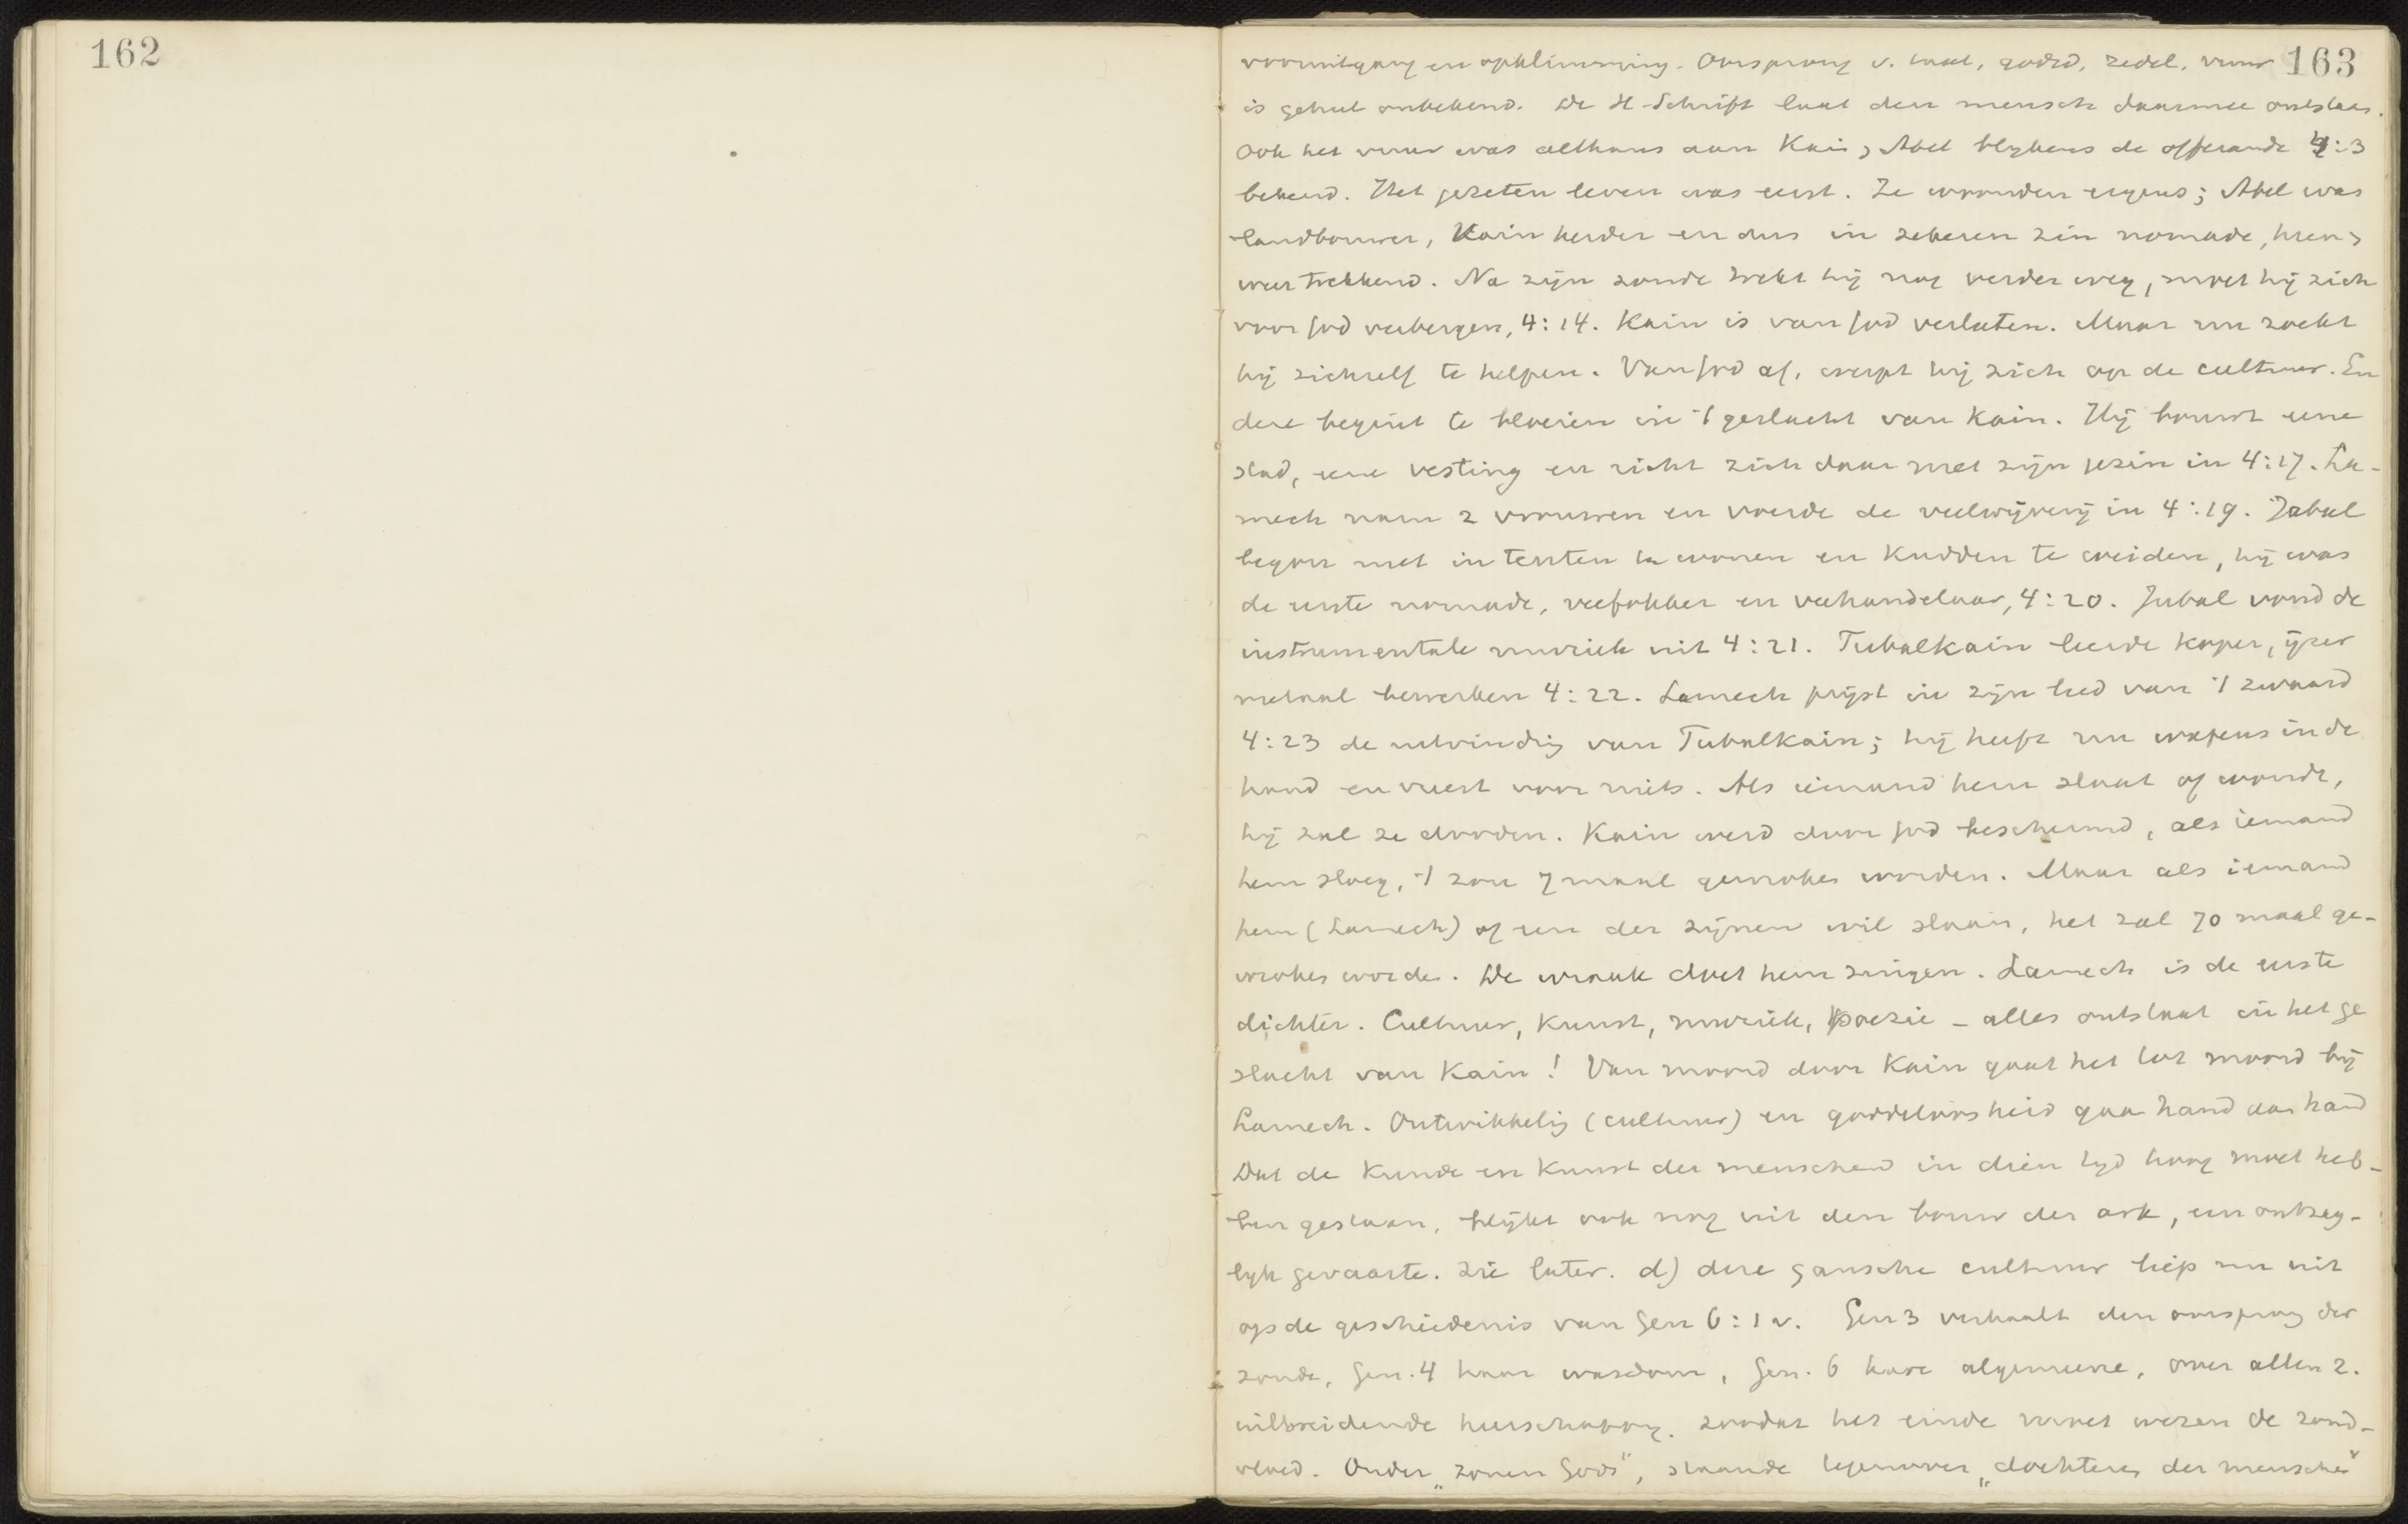 162
163
vooruitgang en opklimming. Oorsprong v. taal, godsd, zedel, vuur
is geheel onbekend. De H-Schrift laat den mensch daarmee ontstaan.
Ook het vuur was althans aan Kain, Abel blykens de offerande 4:3
bekend. Het gezeten leven was eerst. Ze woonden ergens; Abel was
landbouwer, Kain herder en dus in zekeren zin nomade, heen,
weer trekkend. Na zijn zonde trekt hij nog verder weg, moet hij zich
voor God verbergen, 4:14. Kain is van God verlaten. Maar nu zoekt
hij zichzelf te helpen. Van God af, werpt hij zich op de cultuur. En
deze begint te bloeien in 't geslacht van Kain. Hij bouwt eene
stad, eene vesting en richt zich daar met zijn gezin in 4:17. La-
mech nam 2 vrouwen en voerde de veelwijverij in 4:19. Jabal
begon met in tenten te wonen en kudden te weiden, hij was
de eerste nomade, veefokker en veehandelaar, 4:20. Jubal vond de
instrumentale muziek uit 4:21. Tubalkain leerde koper, ijzer
metaal bewerken 4:22. Lamech prijst in zijn lied van 't zwaard
4:23 de uitvinding van Tubalkain; hij heeft nu wapens in de
hand en vreest voor niets. Als iemand hem slaat of wondt,
hij zal ze dooden. Kain werd door God beschermd, als iemand
hem sloeg, 't zou 7 maal gewroken worden. Maar als iemand
hem (Lamech) of een der zijnen wil slaan, het zal 70 maal ge-
wroken worden. De wraak doet hem zingen. Lamech is de eerste
dichter. Cultuur, kunst, muziek, poezie – alles ontstaat in het ge
slacht van Kain! Van moord door Kain gaat het tot moord bij
Lamech. Ontwikkeling (cultuur) en goddeloosheid gaan hand aan hand
Dat de kunde en kunst der menschen in dien tyd hoog moet heb-
ben gestaan, blijkt ook nog uit den bouw der ark, een ontzag-
lijk gevaarte. Zie later. d) deze gansche cultuur liep nu uit
op de geschiedenis van Gen 6:1 v. Gen 3 verhaalt den oorsprong der
zonde, Gen. 4 haar wasdom, Gen. 6 hare algemeene, over allen z.
uitbreidende heerschappy, zoodat het einde moet wezen de zond-
vloed. Onder „zonen Gods", staande tegenover „dochteren der menschen"